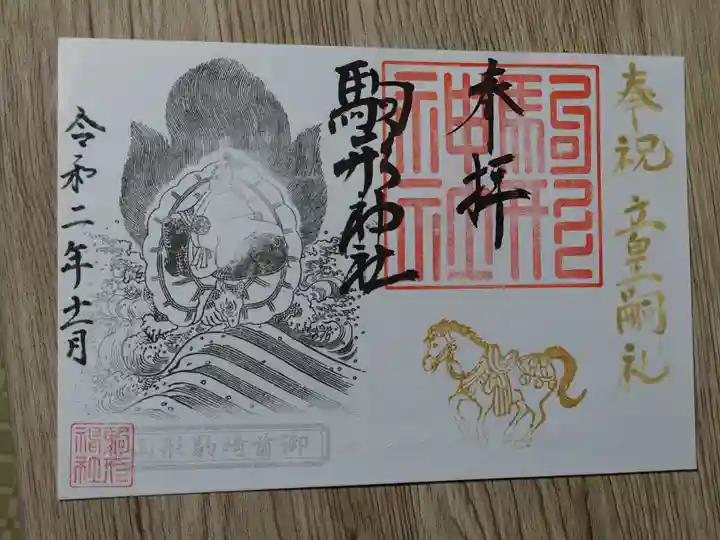 奉祝 立皇嗣礼
奉拝
駒形神社
駒形神社
令和二年十一月
御前埼駒形山
駒形神社